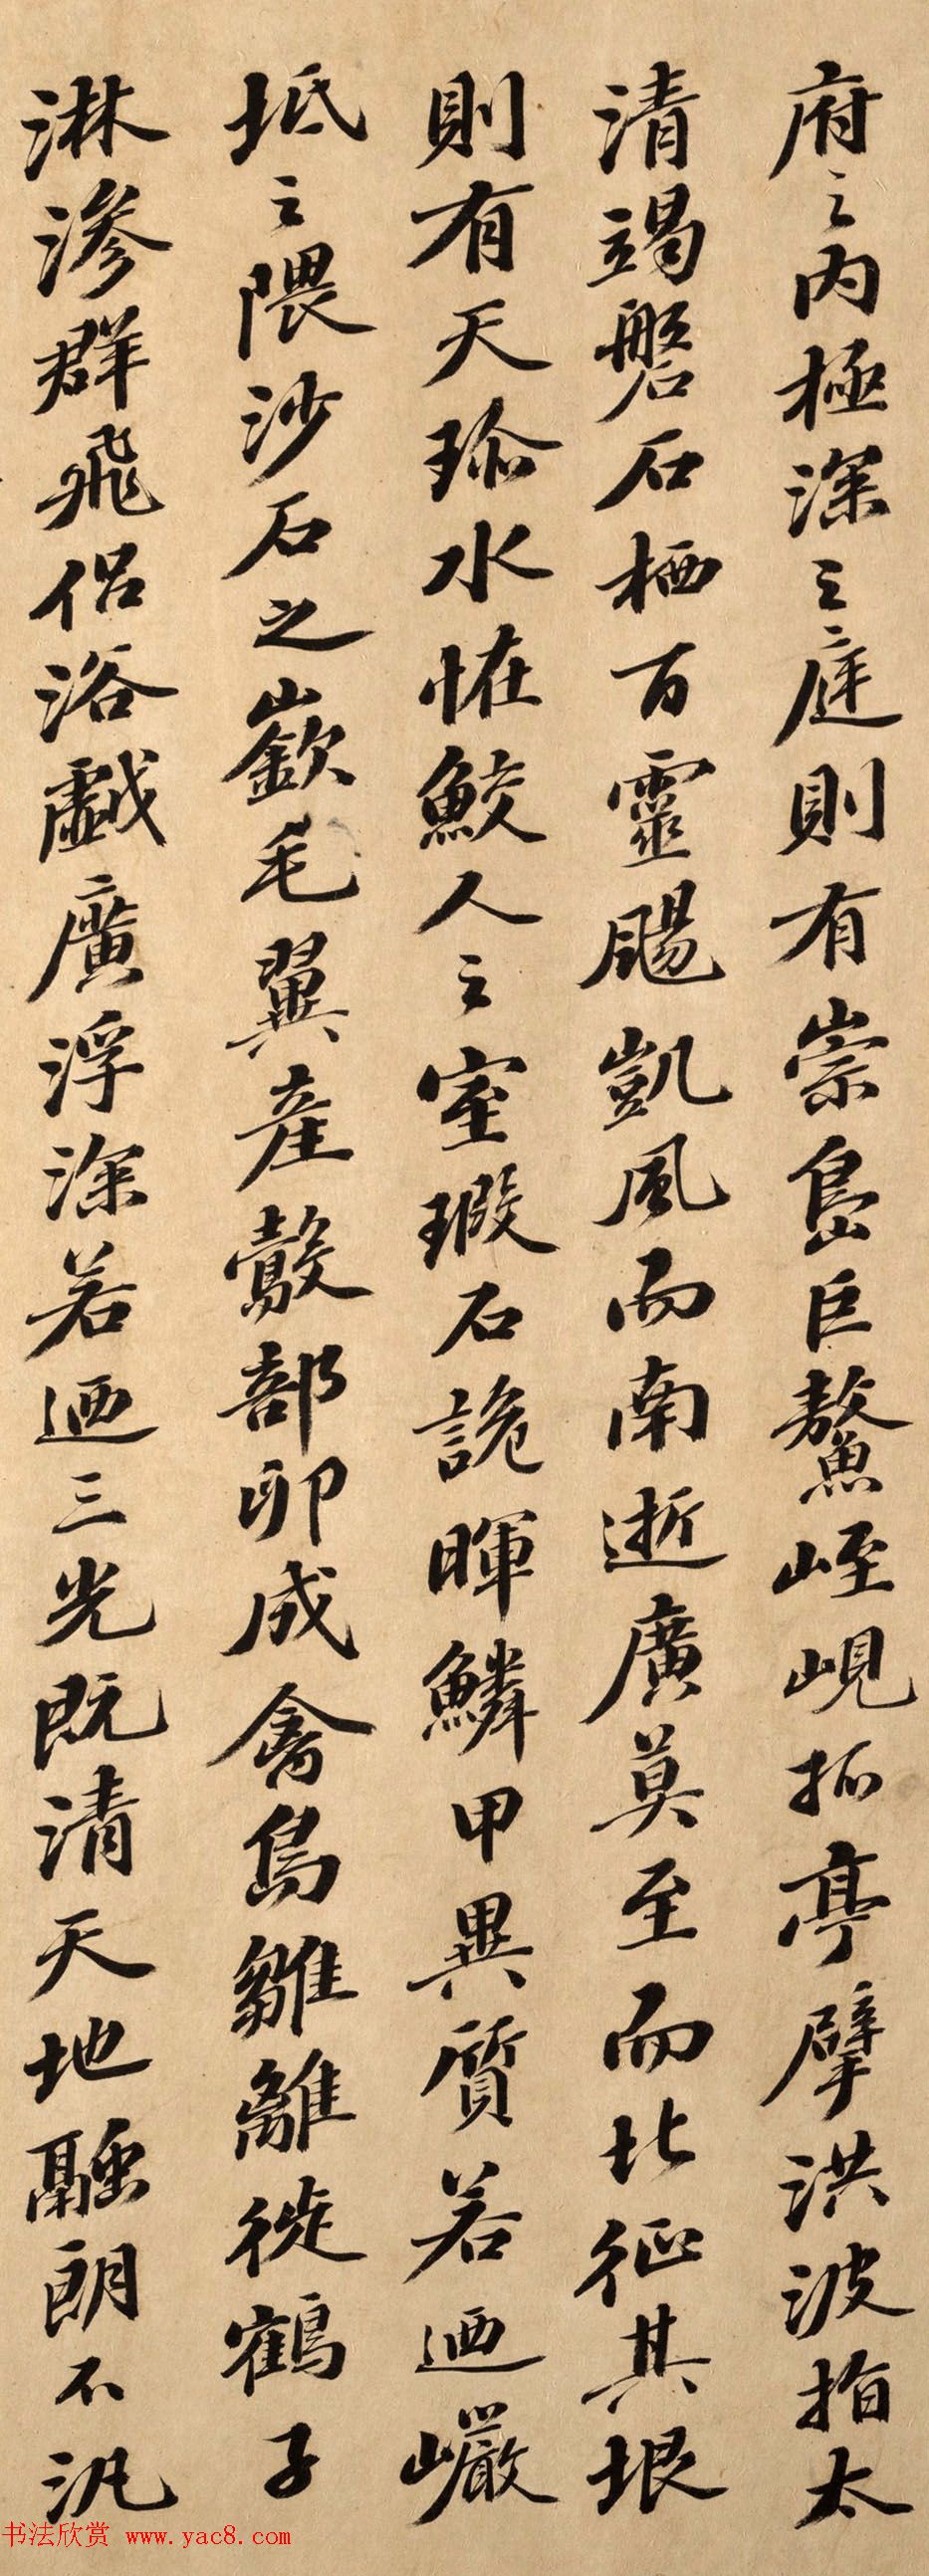 府之内極深之庭則有崇島巨鼇峌峴孤亭擘洪波指太
清竭磐石栖百靈颺凱風而南逝廣莫至而北征其垠
則有天琛水怪鮫人之室瑕石詭暉鱗甲異質若迺巖
坻之隈沙石之嶔毛翼産鷇剖卵成禽鳥雛離褷鶴子
淋滲群飛侣浴戲廣浮深若迺三光既清天地融朗不汎
书法欣赏 www.yac8.com